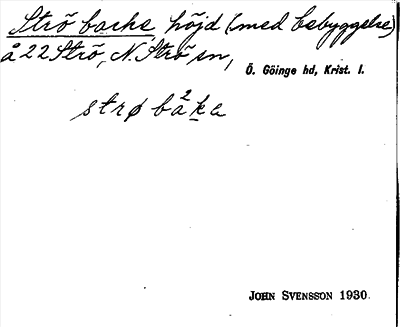 Strö backe, höjd (med bebyggelse)
å 22 Strö, N. Strö sn,
Ö. Göinge hd, Krist. l.
strø bà²ka
JOHN SVENSSON 1930.